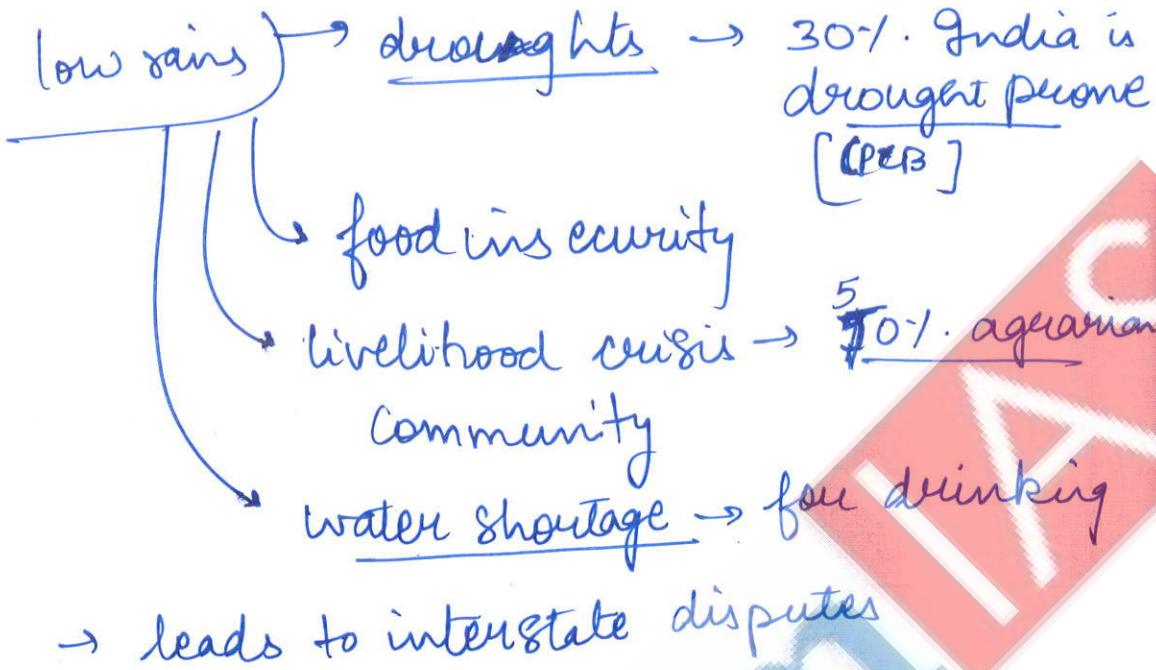 low rains → droughts → 30%. India is
drought prone
[CPCB]
food insecurity
livelihood crisis → 50%. agrarian
community
water shortage → for drinking
→ leads to interstate disputes
IAS